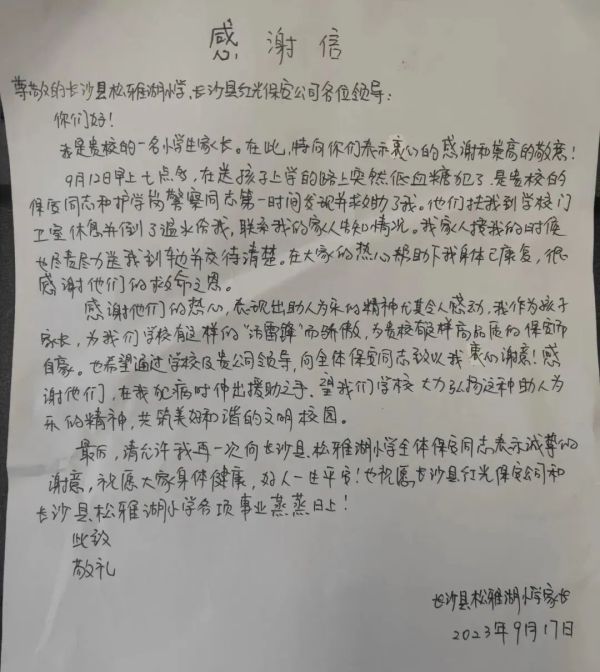 感谢信
尊敬的长沙县松雅湖小学、长沙县红光保安公司各位领导:
你们好!
我是贵校的一名小学生家长。在此,特向你们表示衷心的感谢和崇高的敬意!
9月12日早上七点多,在送孩子上学的路上突然低血糖犯了,是贵校的
保安同志和护学岗警察同志第一时间发现并救助了我。他们扶我到学校门
卫室休息并倒了温水给我,联系我的家人告知情况。我家人接我的时候
也尽责尽力送我到车边并交待清楚。在大家的热心帮助下我身体已康复,很
感谢他们的救命之恩。
感谢他们的热心,表现出助人为乐的精神尤其令人感动,我作为孩子
家长,为我们学校有这样的“活雷锋”而骄傲,为贵校有这样高品质的保安而
自豪。也希望通过学校及贵公司领导,向全体保安同志致以我衷心谢意!感
谢他们,在我犯病时伸出援助之手、望我们学校大力弘扬这种助人为
乐的精神,共筑美好和谐的文明校园。
最后,请允许我再一次向长沙县松雅湖小学全体保安同志表示诚挚的
谢意,祝愿大家身体健康,好人一生平安!也祝愿长沙县红光保安公司和
长沙县松雅湖小学各项事业蒸蒸日上!
此致
敬礼
长沙县松雅湖小学家长
2023年9月17日